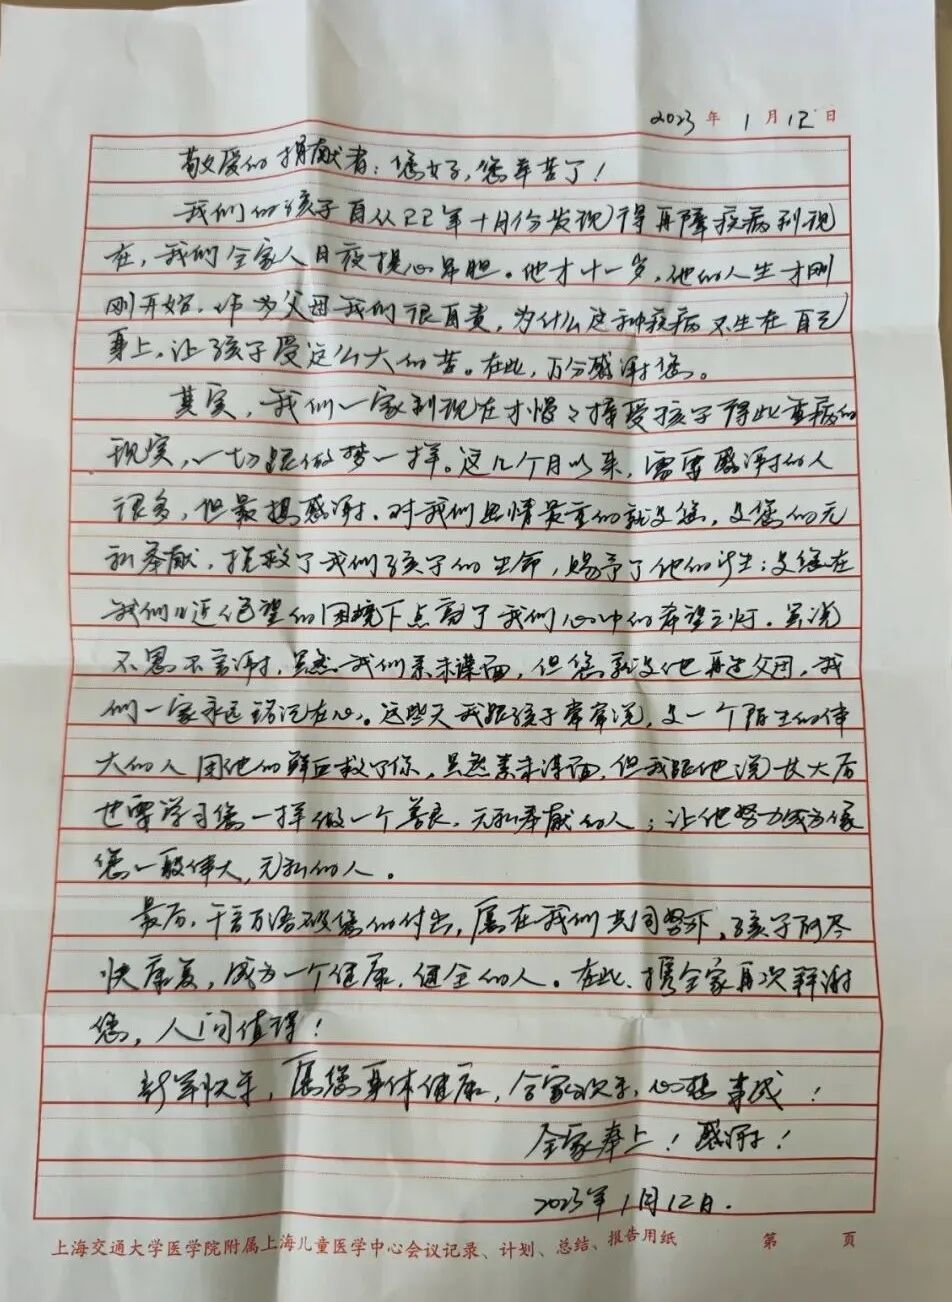 2023年1月12日
敬爱的捐献者：您好，您辛苦了！
我们的孩子自从22年十月份发现得再障疾病到现
在，我们全家人日夜提心吊胆。他才十一岁，他的人生才刚
刚开始，作为父母我们很自责，为什么这种疾病不生在自己
身上，让孩子受这么大的苦。在此，万分感谢您。
其实，我们一家到现在才慢慢接受孩子得此重病的
现实，一切跟做梦一样。这几个月以来，需要感谢的人
很多，但最想感谢、对我们恩情最重的就是您，是您的无
私奉献，拯救了我们孩子的生命，赐予了他的新生；是您在
我们临近绝望的困境下点亮了我们心中的希望之灯。虽说
大恩不言谢，虽然我们素未谋面，但您就是他再造父母，我
们一家永远铭记在心。这些天我跟孩子常常说，是一个陌生的伟
大的人用他的鲜血救了你，虽然素未谋面，但我跟他说长大后
也要学习您一样做一个善良、无私奉献的人；让他努力成为像
您一般伟大，无私的人。
最后，千言万语不及您的付出，愿在我们共同努力下，孩子能尽
快康复，成为一个健康、健全的人。在此，携全家再次拜谢
您，人间值得！
新年快乐，愿您身体健康，全家欢乐，心想事成！
全家奉上！感谢！
2023年1月12日.
上海交通大学医学院附属上海儿童医学中心会议记录、计划、总结、报告用纸 第 页